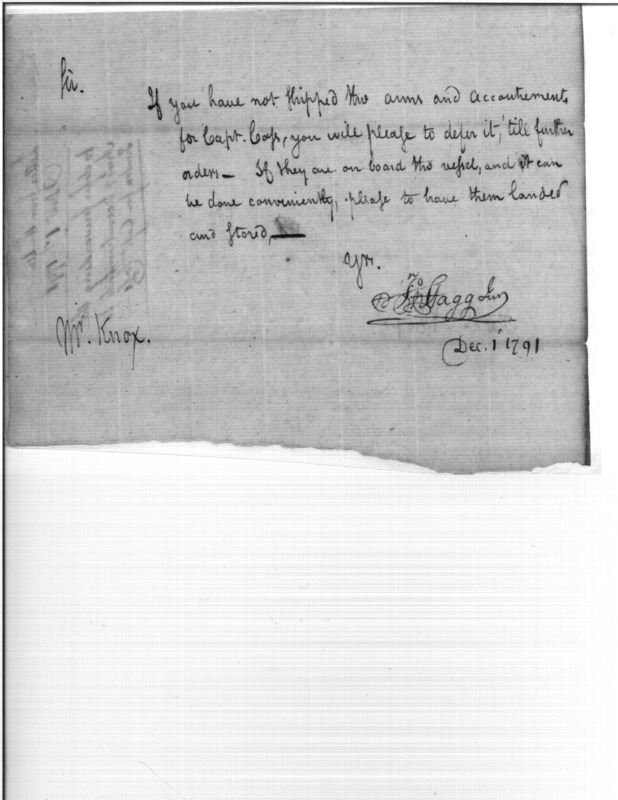 Sir.
If you have not shipped the arms and accoutrements
for Capt. Cass, you will please to defer it, 'till further
orders— If they are on board the vessel, and it can
be done conveniently, please to have them landed
and stored,—
Yrs.
Jno Stagg Jun
Mr. Knox.
Dec. 1 1791